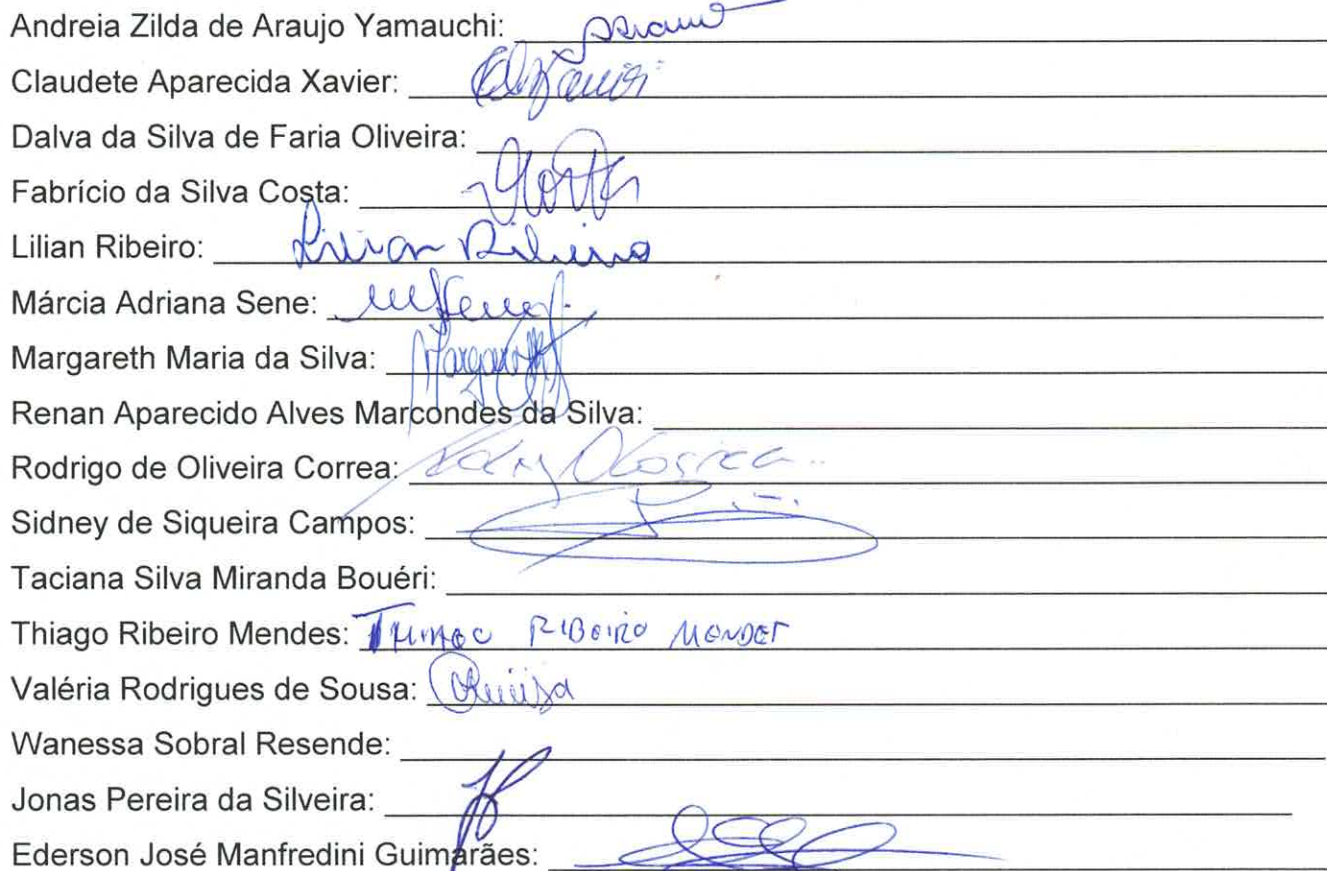 Andreia Zilda de Araujo Yamauchi:
Claudete Aparecida Xavier:
Dalva da Silva de Faria Oliveira:
Fabrício da Silva Costa:
Lilian Ribeiro: Lilian Ribeiro
Márcia Adriana Sene:
Margareth Maria da Silva: Margareth
Renan Aparecido Alves Marcondes da Silva:
Rodrigo de Oliveira Correa:
Sidney de Siqueira Campos:
Taciana Silva Miranda Bouéri:
Thiago Ribeiro Mendes: THIAGO RIBEIRO MENDES
Valéria Rodrigues de Sousa:
Wanessa Sobral Resende:
Jonas Pereira da Silveira:
Ederson José Manfredini Guimarães: